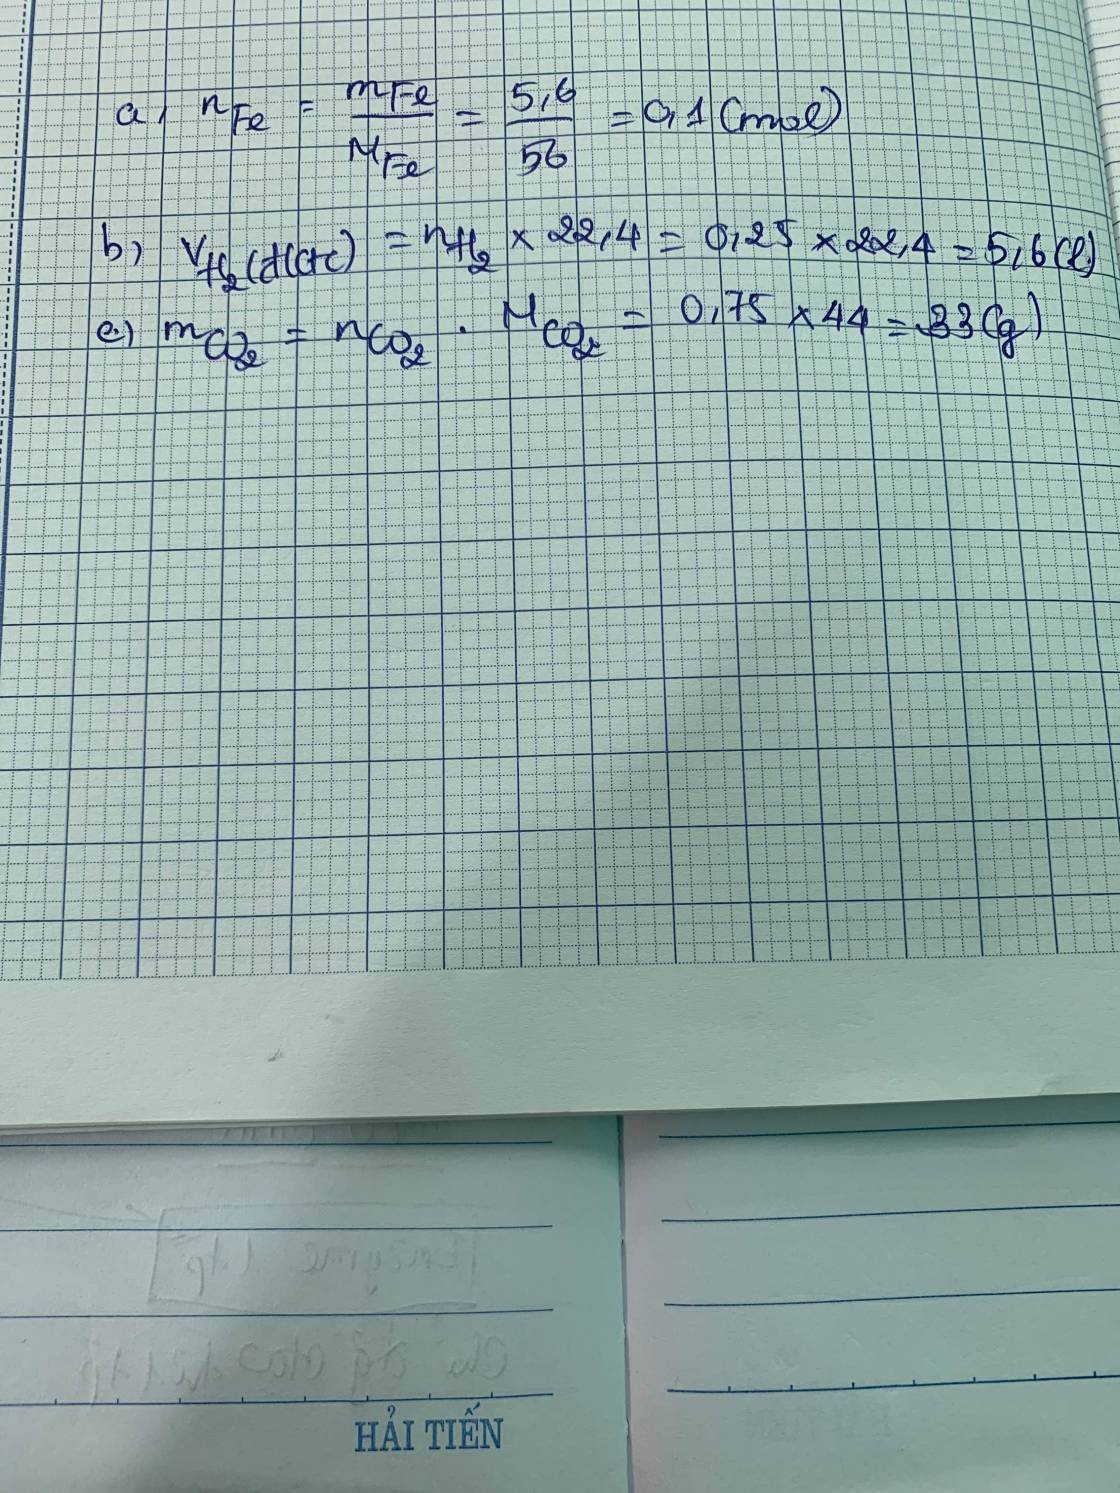 a, nFe = mFe/MFe = 5,6/56 = 0,1 (mol)
b) VH2(đktc) = nH2 × 22,4 = 0,25 × 22,4 = 5,6 (l)
c) mCO2 = nCO2 . MCO2 = 0,75 × 44 = 33 (g)
HẢI TIẾN